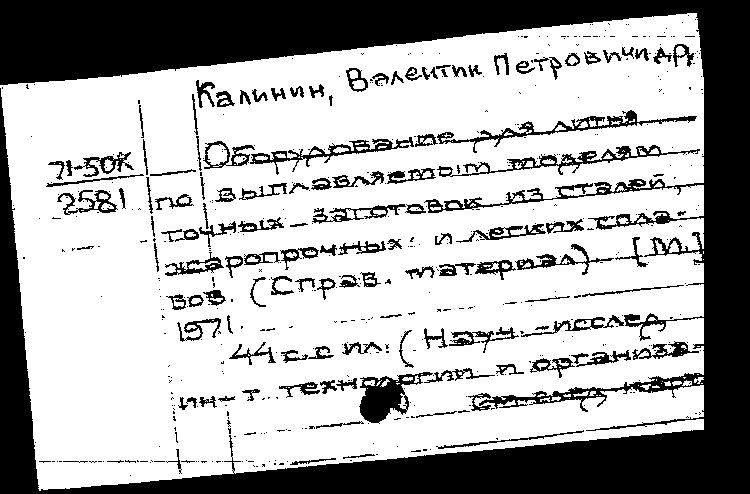 Калинин, Валентин Петрович и др.
71-50К
2581
Оборудование для литья
по выплавляемым моделям
точных заготовок из сталей,
жаропрочных и легких спла-
вов. (Справ. материал). [М.]
1971.
44 с. с ил. (Науч.-исслед.
ин-т технологии и организа-
См. след. карт.